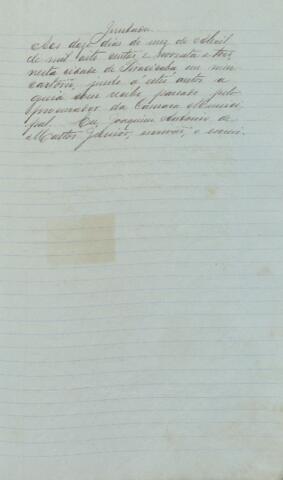 Juntada
Aos doze dias do mez de Abril
de mil oito centos e noventa e tres,
nesta cidade de Piracicaba em meu
cartorio, junto a estes autos a
guia com recibo passado pelo
procurador da Camara Munici-
pal. Eu, Joaquim Antonio de
Mattos Junior, escrivão, o escrevi.